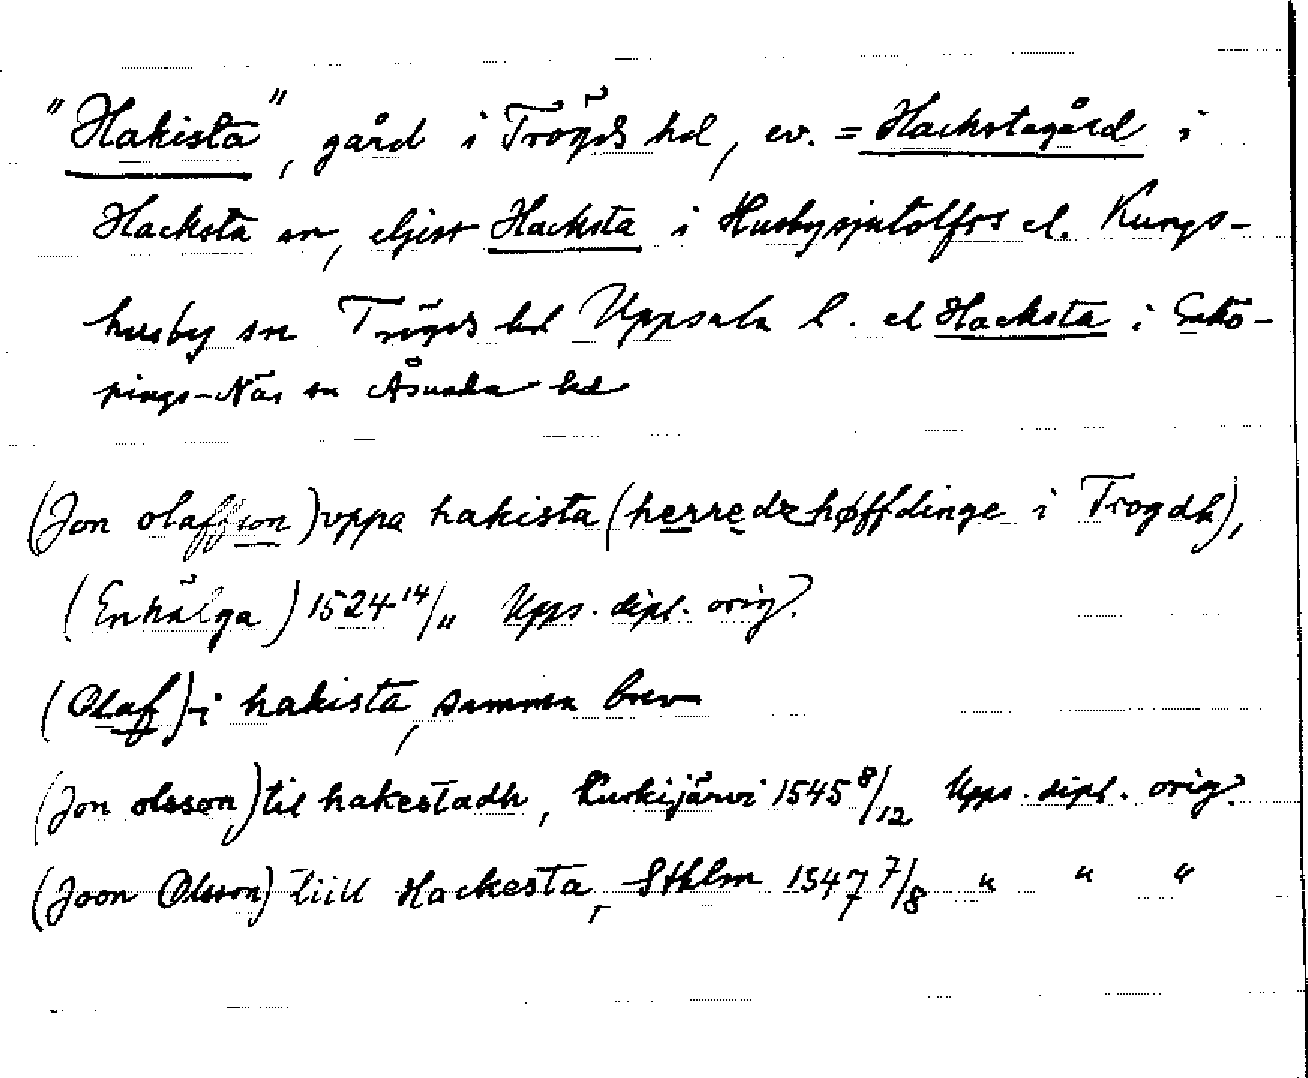 "Hakista", gård i Trögds hd, ev. = Hackstagård i
Hacksta sn, eljest Hacksta i Husbysjutolfts el. Kungs-
husby sn Trögds hd Uppsala l. el Hacksta i Enkö-
pings-Näs sn Åsunda hd
(Jon olaffson) vppa hakista (herredzhøffdinge i Trogdh),
(Enhälga) 1524 14/11 Upps. dipl. orig?
(Olaf) i hakista, samma brev
(Jon olsson) til hakestadh, Kurkijärvi 1545 8/12 Upps. dipl. orig?
(Joon Olsson) tiill Hackesta, Sthlm 1547 7/8 " " "